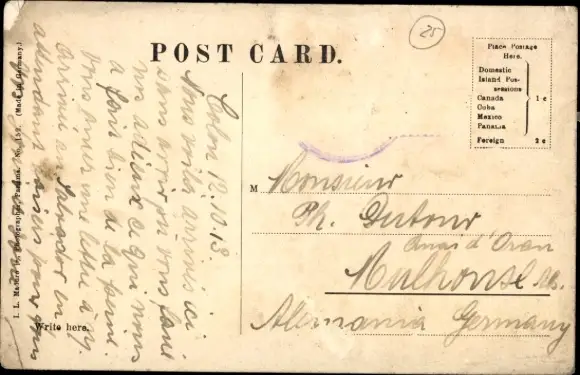 25
POST CARD.
Place Postage
Here.
Domestic
Island Pos-
sessions
Canada
Cuba
Mexico
Panama
1 c
Foreign 2 c
I. L. Maduro Jr. Photographer, Panama. No. 159. (Made in Germany.)
Colon 12.10.13
Nous voilà arrivés ici
sans avoir pu vous faire
nos adieux ce qui nous
a fait bien de la peine.
Vous aurez une lettre à
arrivée au Salvador en
attendant baisers pour
Write here.
M Monsieur
Ph. Dutour
d'Oran
Mulhouse Als.
Alemania Germany